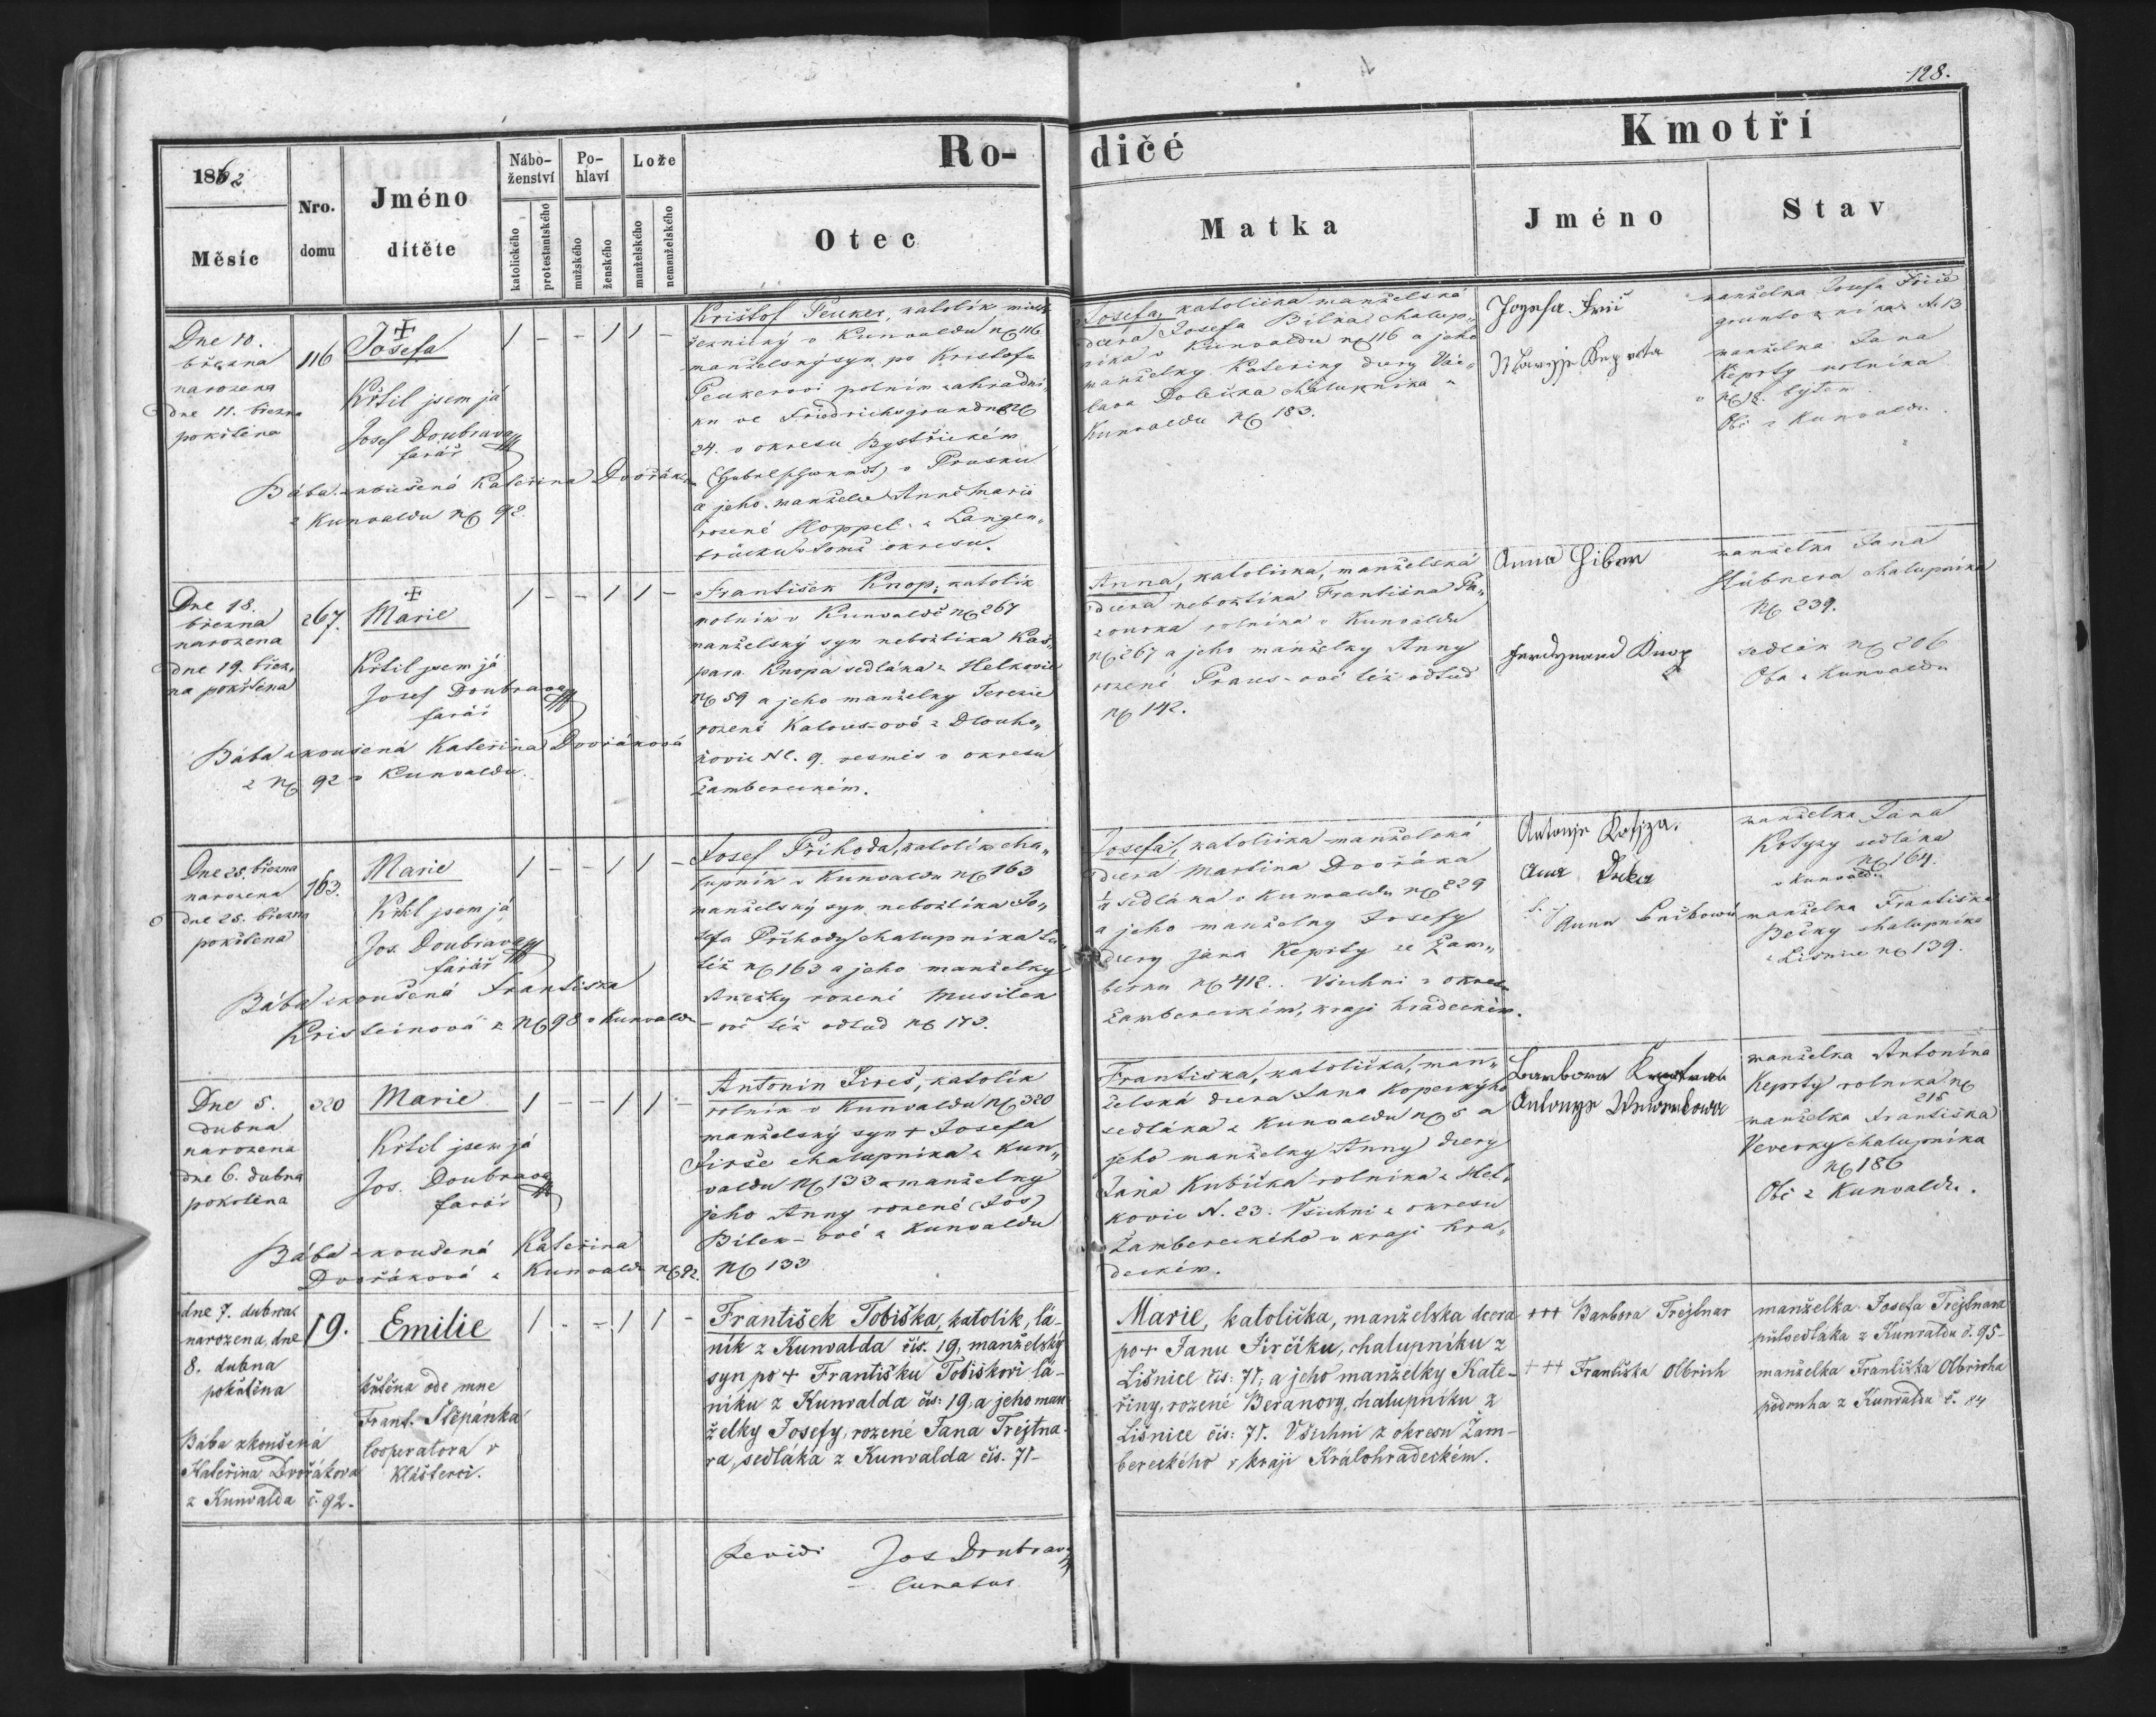 128.
1862
Měsíc
Nro.
domu
Jméno
dítěte
Nábo-
ženství
katolického
protestantského
Po-
hlaví
mužského
ženského
Lože
manželského
nemanželského
Ro-
dičé
Otec
Matka
Kmotří
Jméno
Stav
Dne 10.
března
narozena
dne 11. března
pokřtěna
116
Josefa
Křtil jsem já
Josef Doubrava
farář
Bába zkoušená Kateřina Dvořák
z Kunvaldu N 92.
Krištof Peuker, katolík
v Kunvaldu N 116
manželský syn po Kristofu
Peukerovi polním zahradní
ku ve Friedrichsgrundu N
24. v okresu Bystřickém
(Habelschwerdt) v Prusku
a jeho manželce Anně Marii
rozené Hoppel z Langen„
brücku v tomž okresu.
Josefa, katolička manželská
dcera Josefa Bílka chalup„
níka v Kunvaldu N 116 a jeho
manželky Kateřiny dcery Vác„
lava Dolečka chalupníka z
Kunvaldu N 183.
Manželka Josefa
N. 13
manželka Jana
Keprty rolníka
N 18. bytem
Obě z Kunvaldu.
Dne 18.
března
narozena
dne 19. břez„
na pokřtěna
267.
Marie
Křtil jsem já
Josef Doubrava
farář
Bába zkoušená Kateřina Dvořáková
z N 92 v Kunvaldu.
František Knop, katolík
rolník v Kunvaldě N 267
manželský syn nebožtíka Kaš„
para Knopa sedláka z Helkovic
N 59 a jeho manželky Terezie
rozené Kalous-ové z Dlouho„
ňovic Nl. 9. vesměs v okresu
Žambereckém.
Anna, katolička, manželská
dcera nebožtíka Františka
rolníka v Kunvaldu
N 267 a jeho manželky Anny
rozené Praus-ové též odtud
N 142.
Anna Hibner
manželka Jana
Hübnera chalupníka
N 239.
Ferdynand Knop
sedlák N 206
Oba z Kunvaldu
Dne 25. března
narozena
dne 25. března
pokřtěna
163.
Marie
Křtil jsem já
Jos. Doubrava
farář
Bába zkoušená Františka
Kristeinová z N 98 v Kunvaldu
Josef Příhoda, katolík cha„
lupník v Kunvaldu N 163
manželský syn nebožtíka Jo„
sefa Příhody chalupníka
též N 163 a jeho manželky
Anežky rozené Musílek
-ové též odtud N 173.
Josefa, katolička manželská
dcera Martina Dvořáka
½ sedláka v Kunvaldu N 229
a jeho manželky Josefy
dcery Jána Keprty ze Žam„
berku N 412. Všichni v okresu
Žambereckém, kraji hradeckém.
manželka Jana
Kotyzy sedláka
v Kunvaldu N 164.
manželka Františka
Bečky chalupníka
z Lišnice N 139.
Dne 5.
dubna
narozena
dne 6. dubna
pokřtěna
320
Marie
Křtil jsem já
Jos. Doubrava
farář
Bába zkoušená Kateřina
Dvořáková z Kunvaldu N 92.
Antonín Jireš, katolík
rolník v Kunvaldu N 320
manželský syn + Josefa
Jirše chalupníka z Kun„
valdu N 133 a manželky
jeho Anny rozené (Jos)
Bílek-ové z Kunvaldu
N 133
Františka, katolička, man„
želská dcera Jana Kopeckýho
sedláka z Kunvaldu N 5 a
jeho manželky Anny dcery
Jana Kubíčka rolníka z Hel„
kovic N. 23. Všichni z okresu
Žambereckého v kraji hra„
deckém.
manželka Antonína
Keprty rolníka N
215
manželka Františka
Veverky chalupníka
N 186
Obě z Kunvaldu.
dne 7. dubna
narozena, dne
8. dubna
pokřtěna
Bába zkoušená
Kateřina Dvořákova
z Kunvalda č. 92.
19.
Emilie
křtěna ode mne
Frant. Štěpánka
Cooperatora v
Klášterci.
František Tobiška, katolík, lá-
ník z Kunvalda čís. 19, manželský
syn po + Františku Tobiškovi lá-
níku z Kunvalda čís: 19, a jeho man
želky Josefy, rozené Jana Trejtna-
ra, sedláka z Kunvalda čís. 71-
Marie, katolička, manželska dcera
po + Janu Jirčíku, chalupníku z
Lišnice čís: 71, a jeho manželky Kate-
řiny, rozené Beranovy, chalupníku z
Lišnice čís: 71. Všichni z okresu Žam-
bereckého v kraji Králohradeckém.
+++ Barbora Trejtnar
manželka Josefa Trejtnara
půlsedláka z Kunvaldu č. 95-
+++ Františka Olbrich
manželka Františka Olbricha
podruha z Kunvalda č. 84
Revidi Jos Doubrava
Curatus